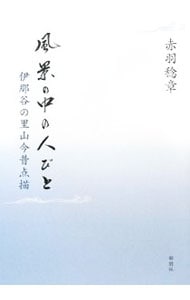 赤羽稔章
風景の中の人びと
伊那谷の里山今昔点描